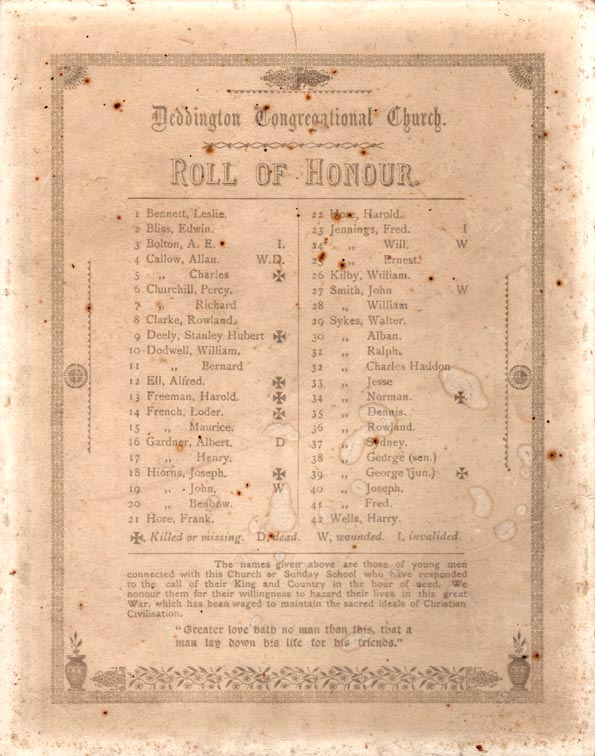 Deddington Congregational Church.
ROLL OF HONOUR.
1 Bennett, Leslie.
2 Bliss, Edwin.
3 Bolton, A. E. I.
4 Callow, Allan. W.D.
5 „ Charles ✠
6 Churchill, Percy.
7 „ Richard
8 Clarke, Rowland.
9 Deely, Stanley Hubert ✠
10 Dodwell, William.
11 „ Bernard
12 Ell, Alfred. ✠
13 Freeman, Harold. ✠
14 French, Loder. ✠
15 „ Maurice.
16 Gardner, Albert. D
17 „ Henry.
18 Hiorns, Joseph. ✠
19 „ John. W
20 „ Benbow.
21 Hore, Frank.
22 Hore, Harold.
23 Jennings, Fred. I
24 „ Will. W
25 „ Ernest.
26 Kilby, William.
27 Smith, John W
28 „ William
29 Sykes, Walter.
30 „ Alban.
31 „ Ralph.
32 „ Charles Haddon
33 „ Jesse
34 „ Norman. ✠
35 „ Dennis.
36 „ Rowland.
37 „ Sydney.
38 „ George (sen.)
39 „ George (jun.) ✠
40 „ Joseph.
41 „ Fred.
42 Wells, Harry.
✠, Killed or missing. D, dead. W, wounded. I, invalided.
The names given above are those of young men
connected with this Church or Sunday School who have responded
to the call of their King and Country in the hour of need. We
honour them for their willingness to hazard their lives in this great
War, which has been waged to maintain the sacred ideals of Christian
Civilisation.
"Greater love hath no man than this, that a
man lay down his life for his friends."